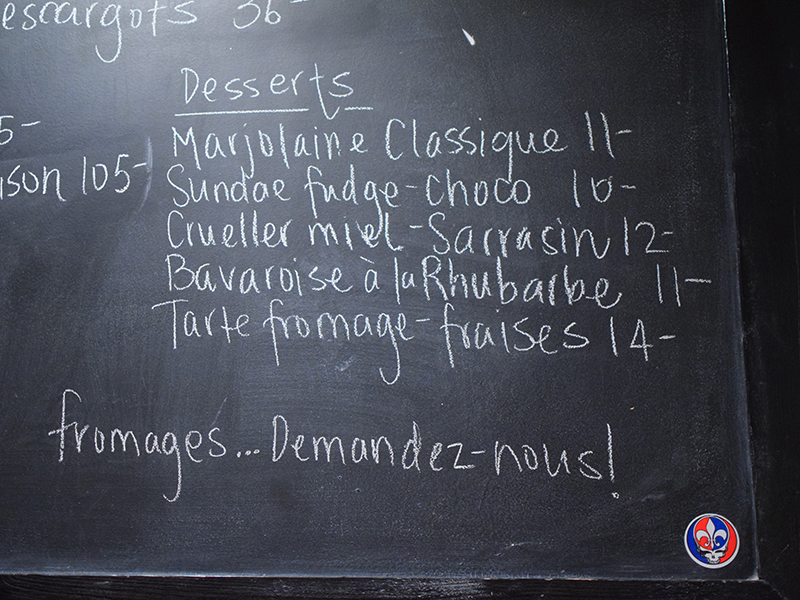 escargots 36-
Desserts
5-
Marjolaine Classique 11-
ison 105-
Sundae fudge-choco 10-
Crueller miel-Sarrasin 12-
Bavaroise à la Rhubarbe 11-
Tarte fromage-fraises 14-
fromages... Demandez-nous!